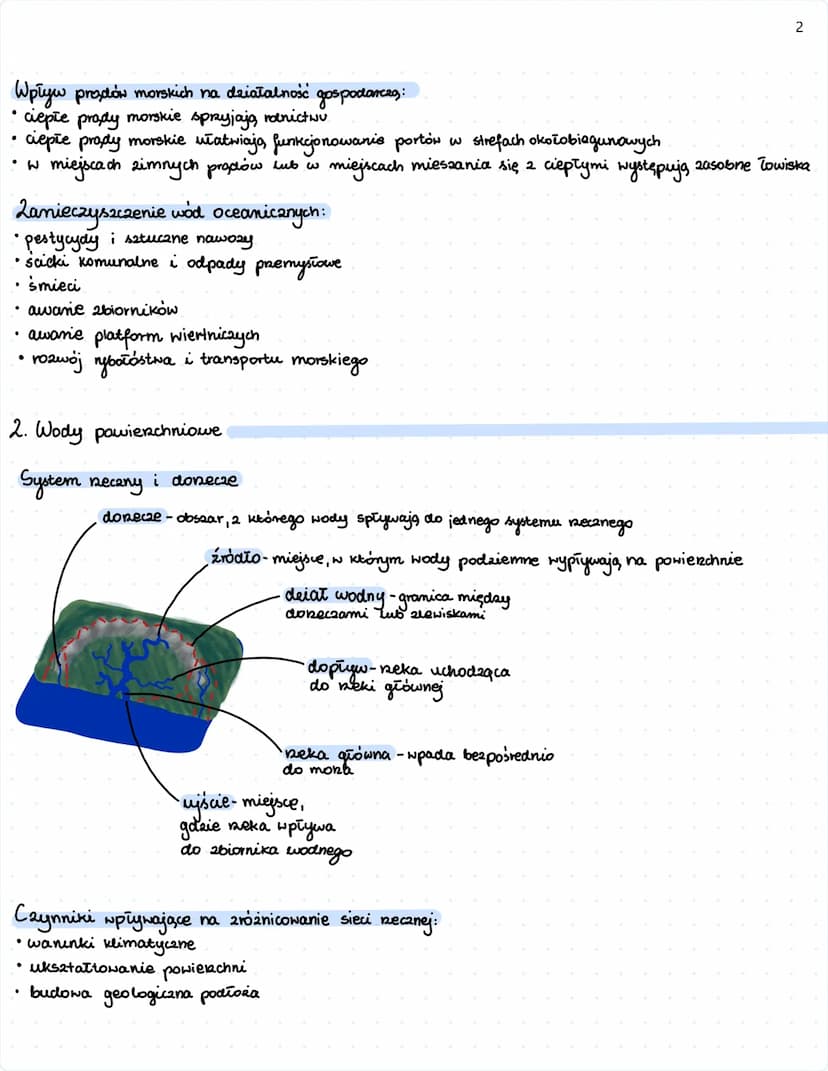 2
Wpływ prądów morskich na działalność gospodarczą:
• ciepłe prądy morskie sprzyjają rolnictwu
• ciepłe prądy morskie ułatwiają funkcjonowanie portów w strefach okołobiegunowych
• w miejscach zimnych prądów lub w miejscach mieszania się z ciepłymi występują zasobne łowiska
Zanieczyszczenie wód oceanicznych:
• pestycydy i sztuczne nawozy
• ścieki komunalne i odpady przemysłowe
• śmieci
• awarie zbiorników
• awarie platform wiertniczych
• rozwój rybołóstwa i transportu morskiego
2. Wody powierzchniowe
System rzeczny i dorzecze
dorzecze - obszar, z którego wody spływają do jednego systemu rzecznego
źródło - miejsce, w którym wody podziemne wypływają na powierzchnie
dział wodny - granica między
dorzeczami lub zlewiskami
dopływ - rzeka uchodząca
do rzeki głównej
rzeka główna - wpada bezpośrednio
do morza
ujście - miejsce,
gdzie rzeka wpływa
do zbiornika wodnego
Czynniki wpływające na zróżnicowanie sieci rzecznej:
• warunki klimatyczne
• ukształtowanie powierzchni
• budowa geologiczna podłoża